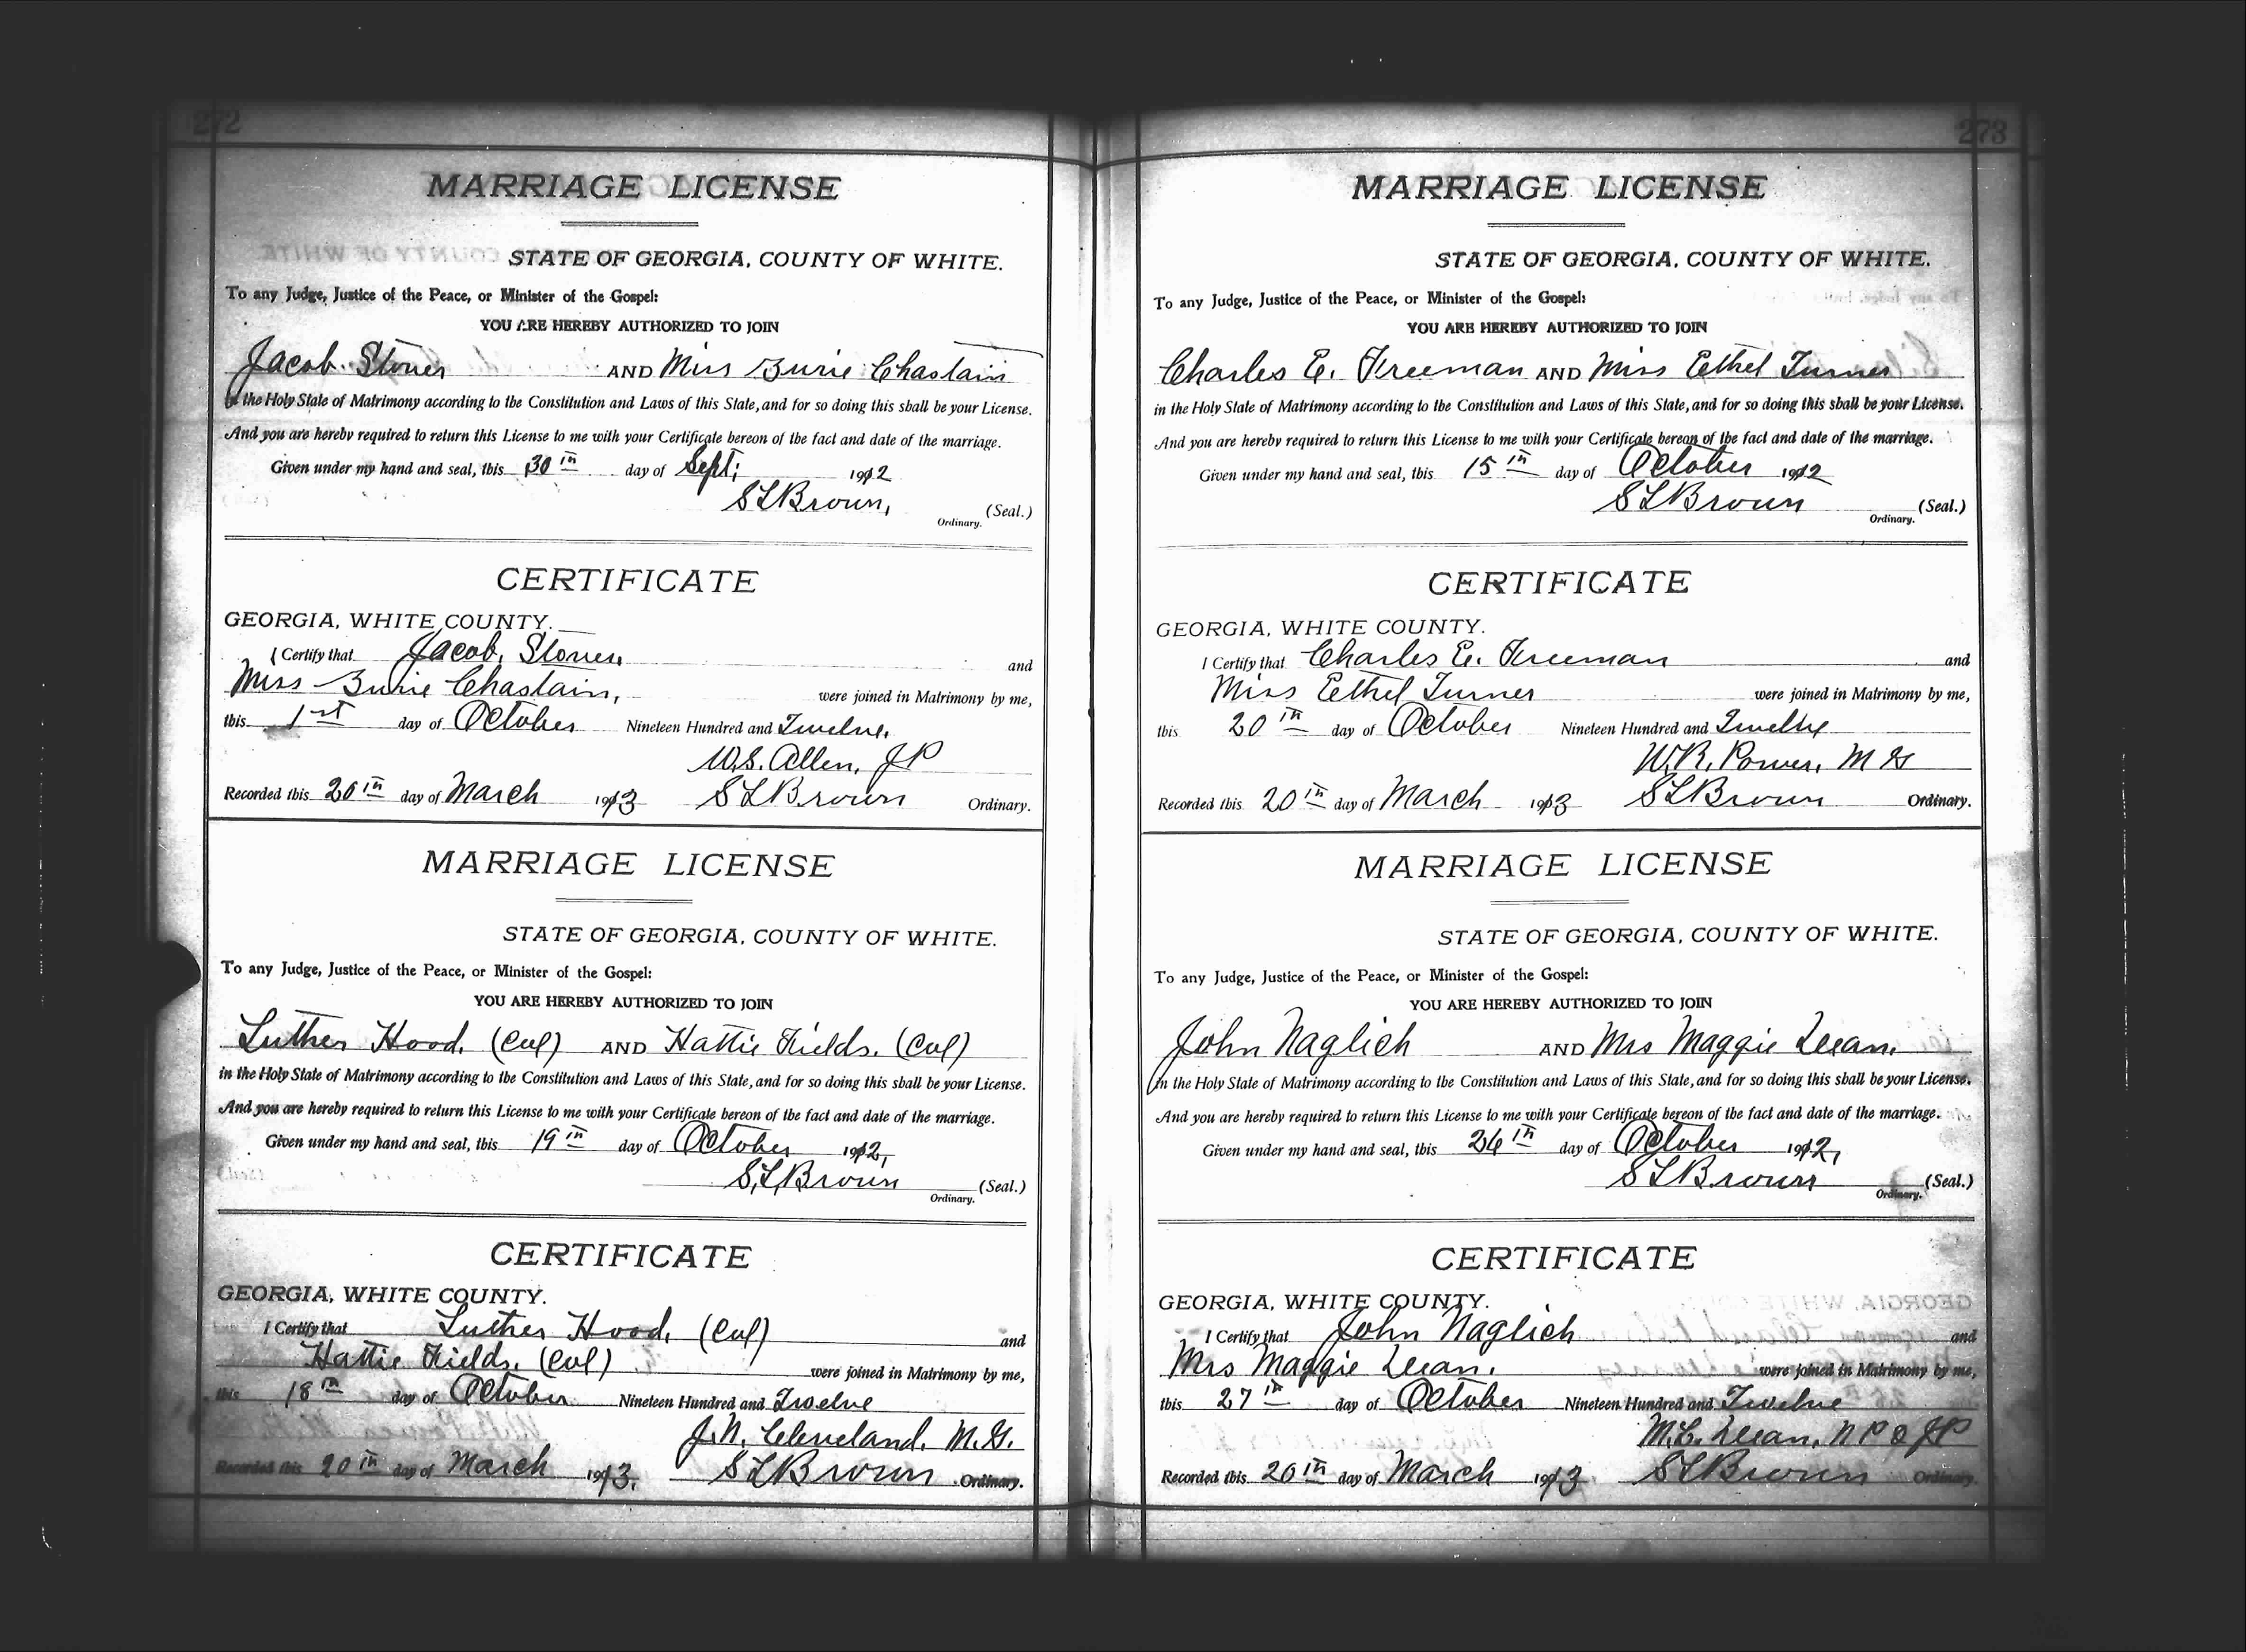 272
MARRIAGE LICENSE
STATE OF GEORGIA, COUNTY OF WHITE.
To any Judge, Justice of the Peace, or Minister of the Gospel:
YOU ARE HEREBY AUTHORIZED TO JOIN
Jacob. Stover AND Miss Burie Chastain
in the Holy State of Matrimony according to the Constitution and Laws of this State, and for so doing this shall be your License.
And you are hereby required to return this License to me with your Certificate hereon of the fact and date of the marriage.
Given under my hand and seal, this 30th day of Sept; 1912
S L Brown, (Seal.)
Ordinary.
CERTIFICATE
GEORGIA, WHITE COUNTY.
I Certify that Jacob, Stover, and
Miss Burie Chastain, were joined in Matrimony by me,
this 1st day of October Nineteen Hundred and Twelve,
W.S. Allen, JP
Recorded this 20th day of March 1913 S L Brown Ordinary.
MARRIAGE LICENSE
STATE OF GEORGIA, COUNTY OF WHITE.
To any Judge, Justice of the Peace, or Minister of the Gospel:
YOU ARE HEREBY AUTHORIZED TO JOIN
Luther Hood, (Col) AND Hattie Fields. (Col)
in the Holy State of Matrimony according to the Constitution and Laws of this State, and for so doing this shall be your License.
And you are hereby required to return this License to me with your Certificate hereon of the fact and date of the marriage.
Given under my hand and seal, this 19th day of October 1912,
S,L,Brown (Seal.)
Ordinary.
CERTIFICATE
GEORGIA, WHITE COUNTY.
I Certify that Luther Hood, (Col) and
Hattie Fields. (Col) were joined in Matrimony by me,
this 18th day of October Nineteen Hundred and Twelve
J.N. Cleveland, M.G.
Recorded this 20th day of March 1913. S L Brown Ordinary.
273
MARRIAGE LICENSE
STATE OF GEORGIA, COUNTY OF WHITE.
To any Judge, Justice of the Peace, or Minister of the Gospel:
YOU ARE HEREBY AUTHORIZED TO JOIN
Charles E. Freeman AND Miss Ethel Turner
in the Holy State of Matrimony according to the Constitution and Laws of this State, and for so doing this shall be your License.
And you are hereby required to return this License to me with your Certificate hereon of the fact and date of the marriage.
Given under my hand and seal, this 15th day of October 1912
S L Brown (Seal.)
Ordinary.
CERTIFICATE
GEORGIA, WHITE COUNTY.
I Certify that Charles E. Freeman and
Miss Ethel Turner were joined in Matrimony by me,
this 20th day of October Nineteen Hundred and Twelve
W.R. Power, M G
Recorded this 20th day of March 1913 S L Brown Ordinary.
MARRIAGE LICENSE
STATE OF GEORGIA, COUNTY OF WHITE.
To any Judge, Justice of the Peace, or Minister of the Gospel:
YOU ARE HEREBY AUTHORIZED TO JOIN
John Naglich AND Mrs Maggie Dean,
in the Holy State of Matrimony according to the Constitution and Laws of this State, and for so doing this shall be your License.
And you are hereby required to return this License to me with your Certificate hereon of the fact and date of the marriage.
Given under my hand and seal, this 26th day of October 1912,
S L Brown (Seal.)
Ordinary.
CERTIFICATE
GEORGIA, WHITE COUNTY.
I Certify that John Naglich and
Mrs Maggie Dean, were joined in Matrimony by me,
this 27th day of October Nineteen Hundred and Twelve
M.C. Dean, N P & JP
Recorded this 20th day of March 1913 S L Brown Ordinary.